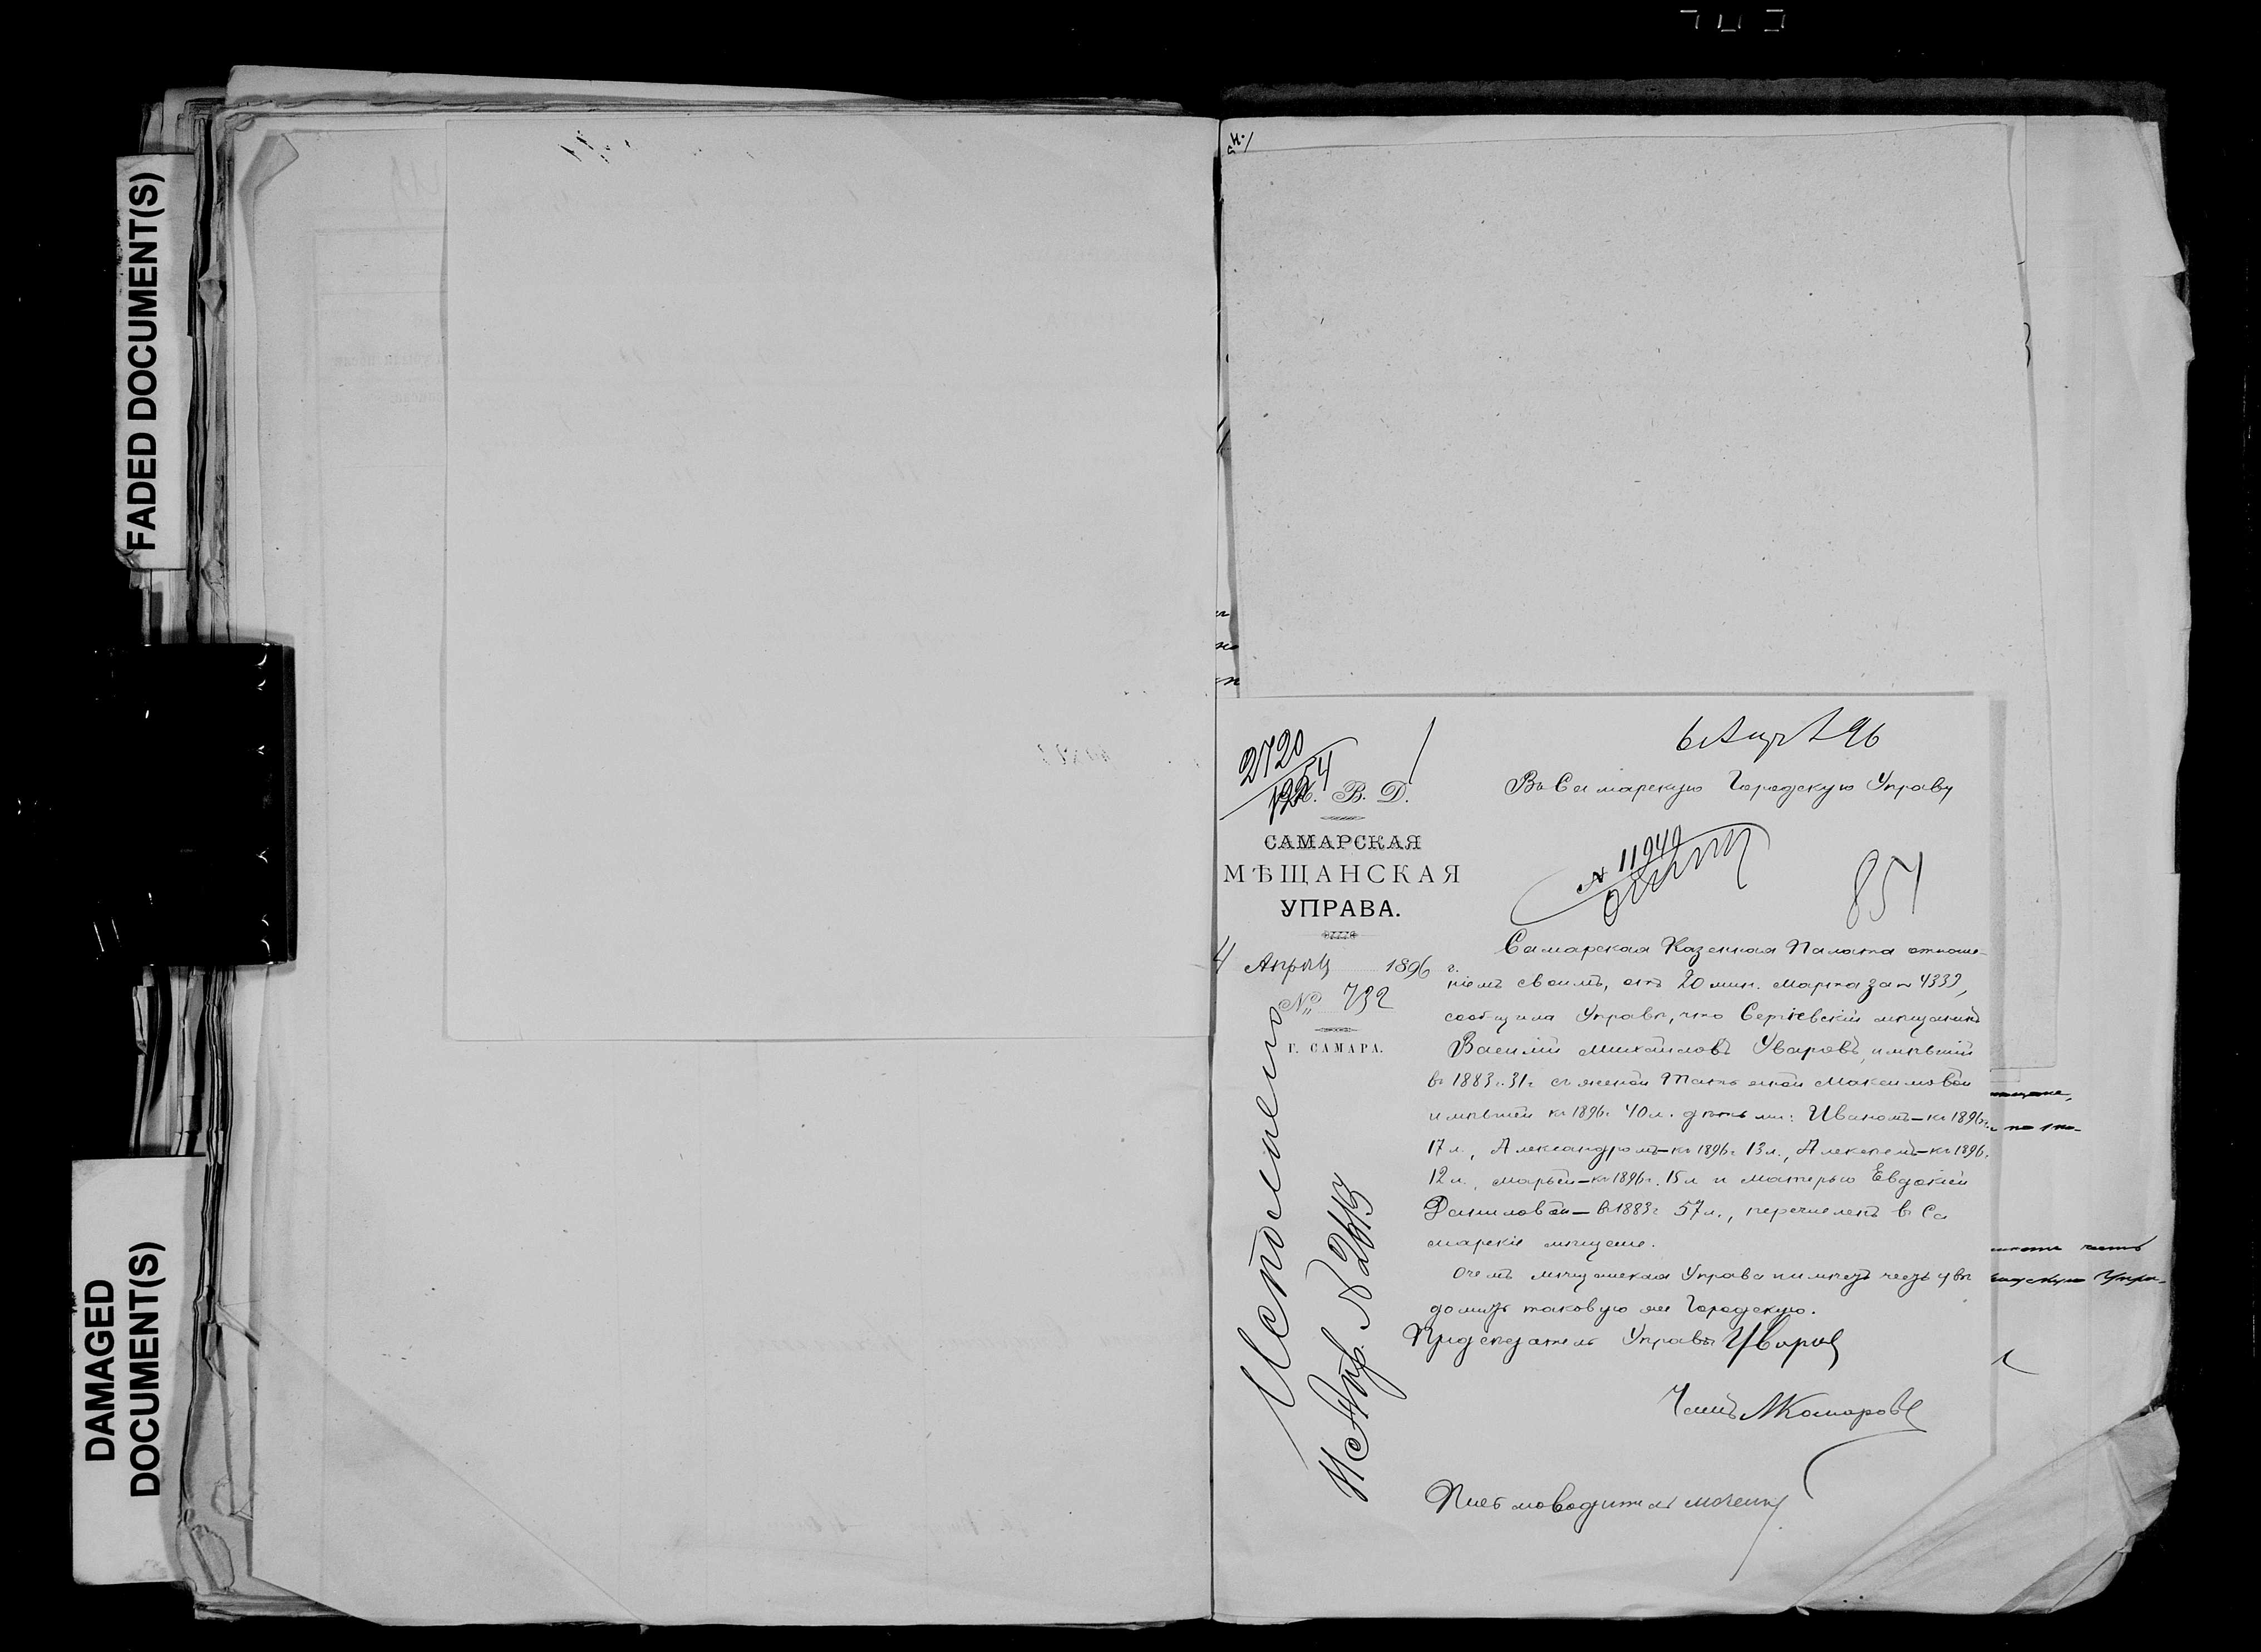 FADED DOCUMENT(S)
DAMAGED
DOCUMENT(S)
6 Апр 96
2720
1254
В. Д.
САМАРСКАЯ
МѢЩАНСКАЯ
УПРАВА.
4 Апрѣля 1896 г.
№ 732
Г. САМАРА.
Въ Самарскую Городскую Управу
№ 11940
854
Самарская Казенная Палата отноше-
ніемъ своимъ, отъ 20 мин. Марта за № 4339,
сообщила Управѣ, что Сергіевскій мѣщанинъ
Василій Михайловъ Уваровъ, имѣвшій
въ 1883 г. 31 г. съ женой Татьяной Максимовой
имѣвшей къ 1896 г. 40 л. дѣтьми: Иваномъ – къ 1896 г.
17 л., Александромъ – къ 1896 г. 13 л., Алексѣемъ – къ 1896 г.
12 л., Марьей – къ 1896 г. 15 л. и матерью Евдокіей
Даниловой – въ 1883 г. 57 л., перечисленъ въ Са
марскіе мѣщане.
О чемъ мѣщанская Управа имѣетъ честь увѣ
домить таковую же Городскую.
Предсѣдатель Управы Уваровъ
Членъ Комаровъ
Письмоводитель
Исполнено
11 Апр. № 2613